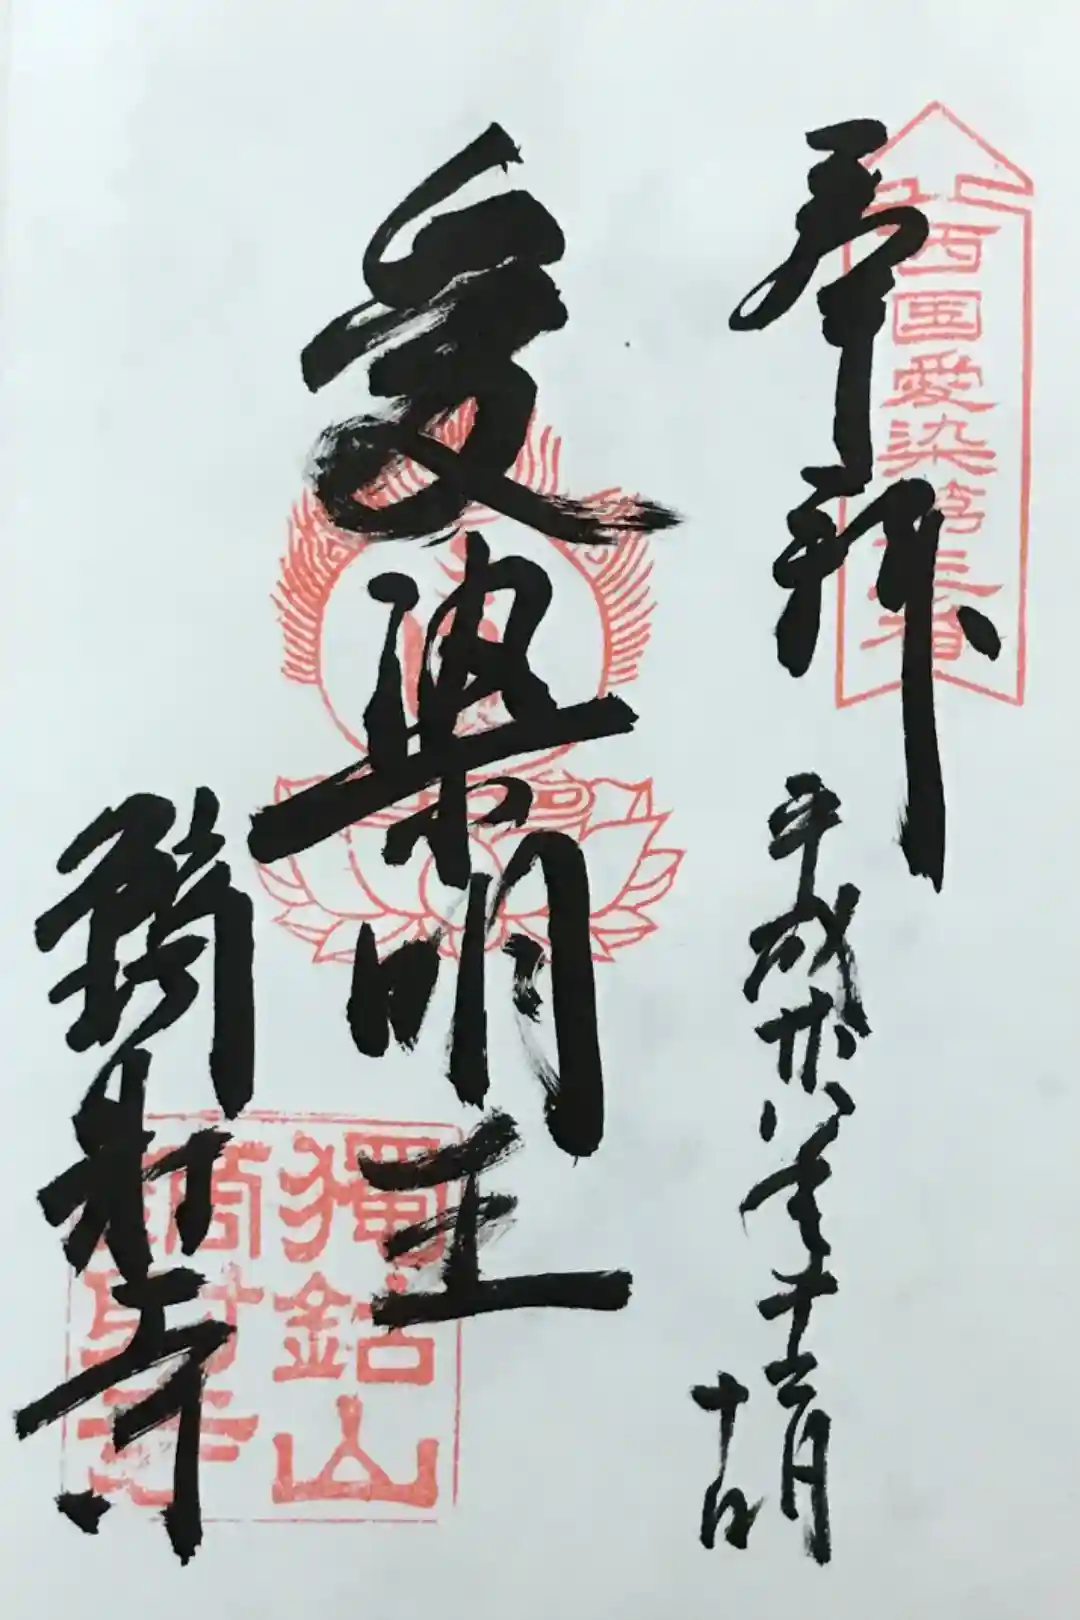 西国愛染第三番
奉拝
平成廿八年十二月
愛染明王
獨鈷山
鏑射寺
鏑射寺